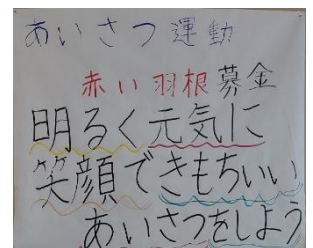 あいさつ運動
赤い羽根募金
明るく元気に
笑顔できもちいい
あいさつをしよう